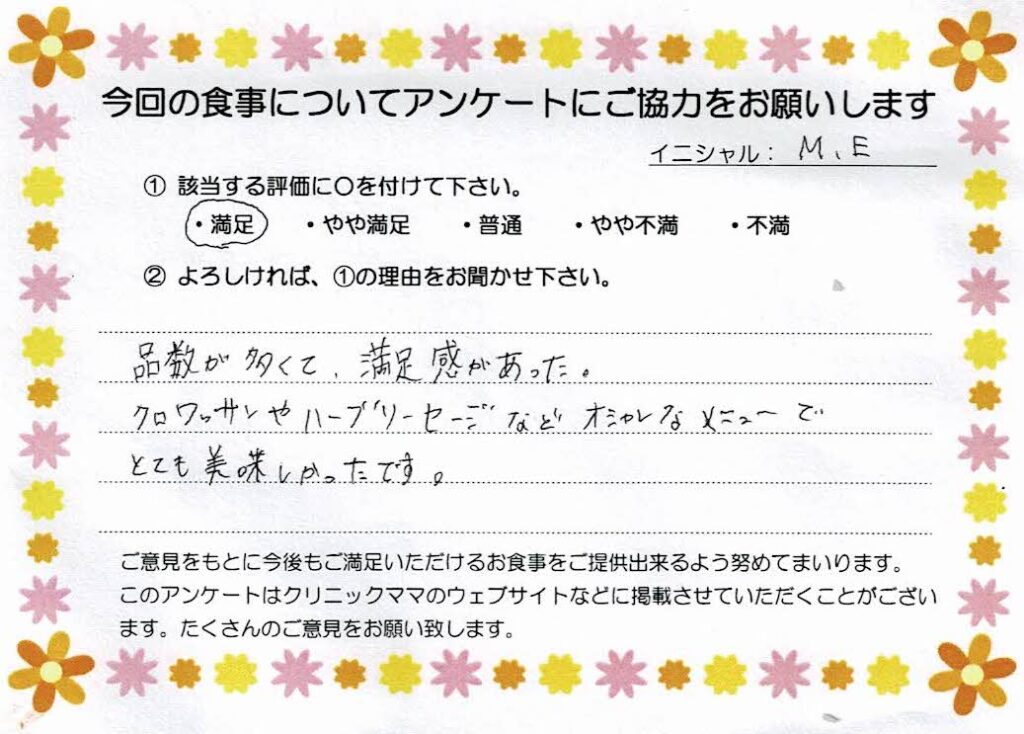 今回の食事についてアンケートにご協力をお願いします
イニシャル： M、E
① 該当する評価に〇を付けて下さい。
・満足 ・やや満足 ・普通 ・やや不満 ・不満
② よろしければ、①の理由をお聞かせ下さい。
品数が多くて、満足感があった。
クロワッサンやハーブソーセージなどオシャレなメニューで
とても美味しかったです。
ご意見をもとに今後もご満足いただけるお食事をご提供出来るよう努めてまいります。
このアンケートはクリニックママのウェブサイトなどに掲載させていただくことがござい
ます。たくさんのご意見をお願い致します。